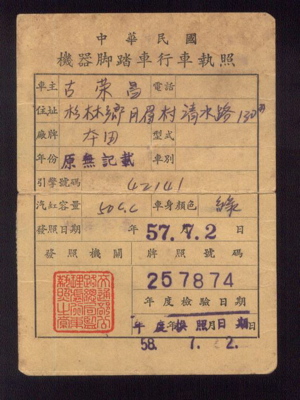 中華民國
機器脚踏車行車執照
車主 古榮昌 電話
住址 杉林鄉月眉村清水路130
廠牌 本田 型式
年份 原無記載 車別
引擎號碼 42141
汽缸容量 50c.c 車身顏色 綠
發照日期 年 57.7.2 日
發照機關 牌照號碼
257874
年度檢驗日期
年度換照日期
58. 7. 2.